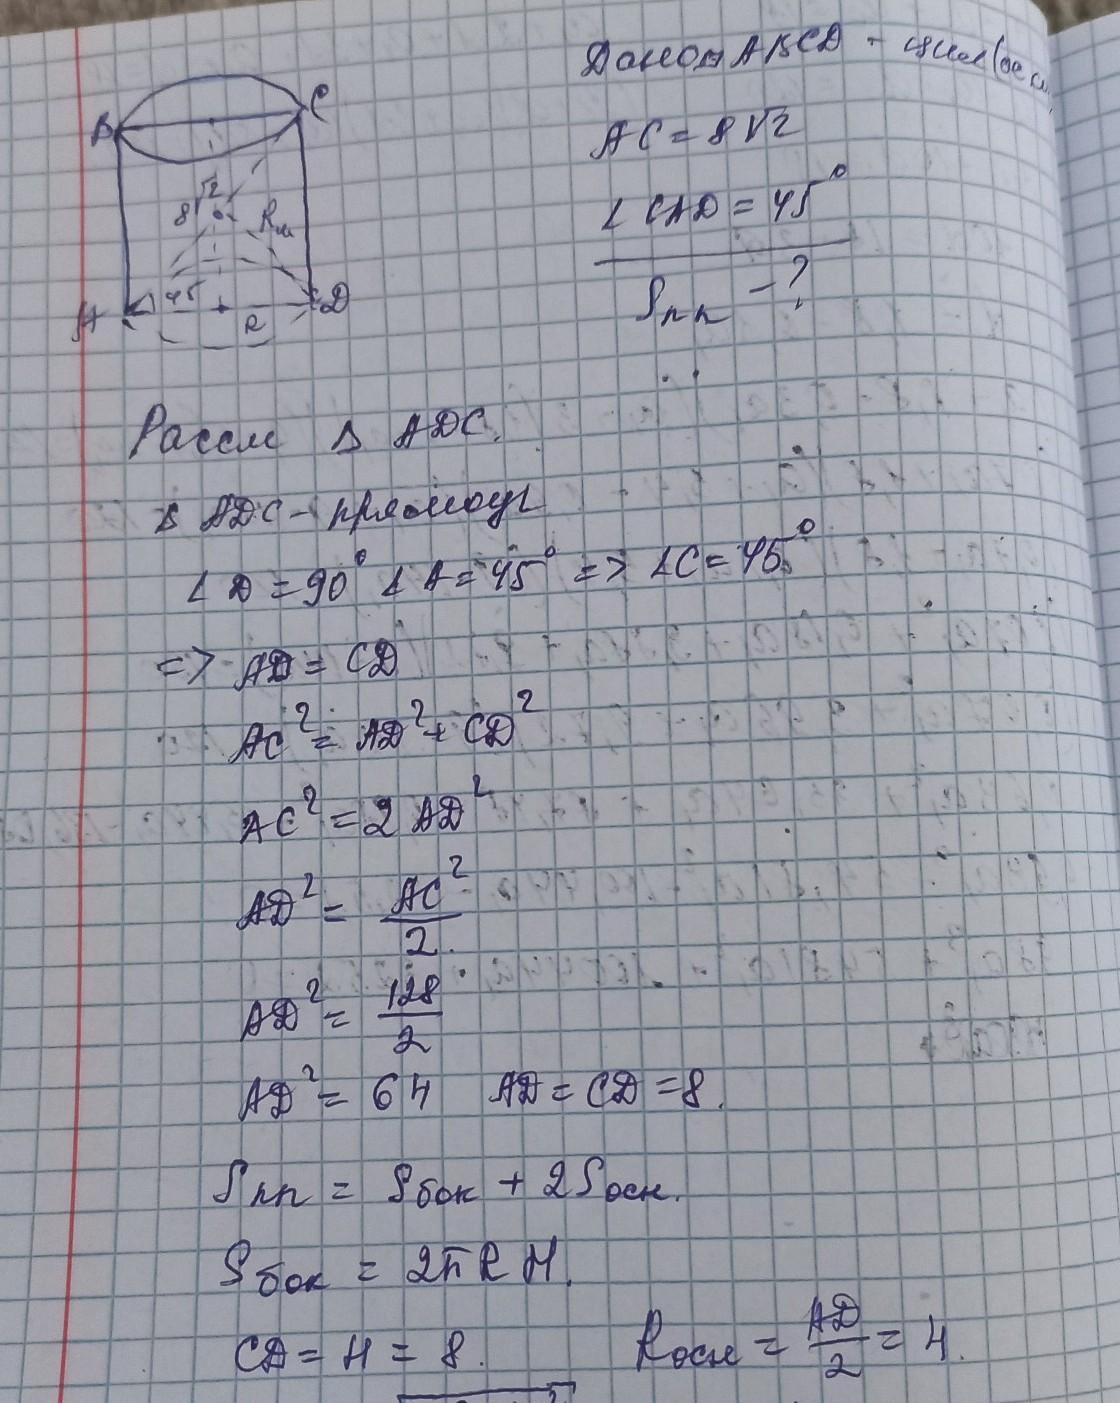 B C
8√2
Rш
45
A R D
Дано ABCD -
AC = 8√2
∠CAD = 45°
Sпп - ?
Рассм Δ ADC.
Δ ADC - прямоуг
∠D = 90° ∠A = 45° => ∠C = 45°
=> AD = CD
AC² = AD² + CD²
AC² = 2 AD²
AD² = AC²/2.
AD² = 128/2
AD² = 64 AD = CD = 8.
Sпп = Sбок + 2Sосн.
Sбок = 2πRH.
CD = H = 8. Rосн = AD/2 = 4.